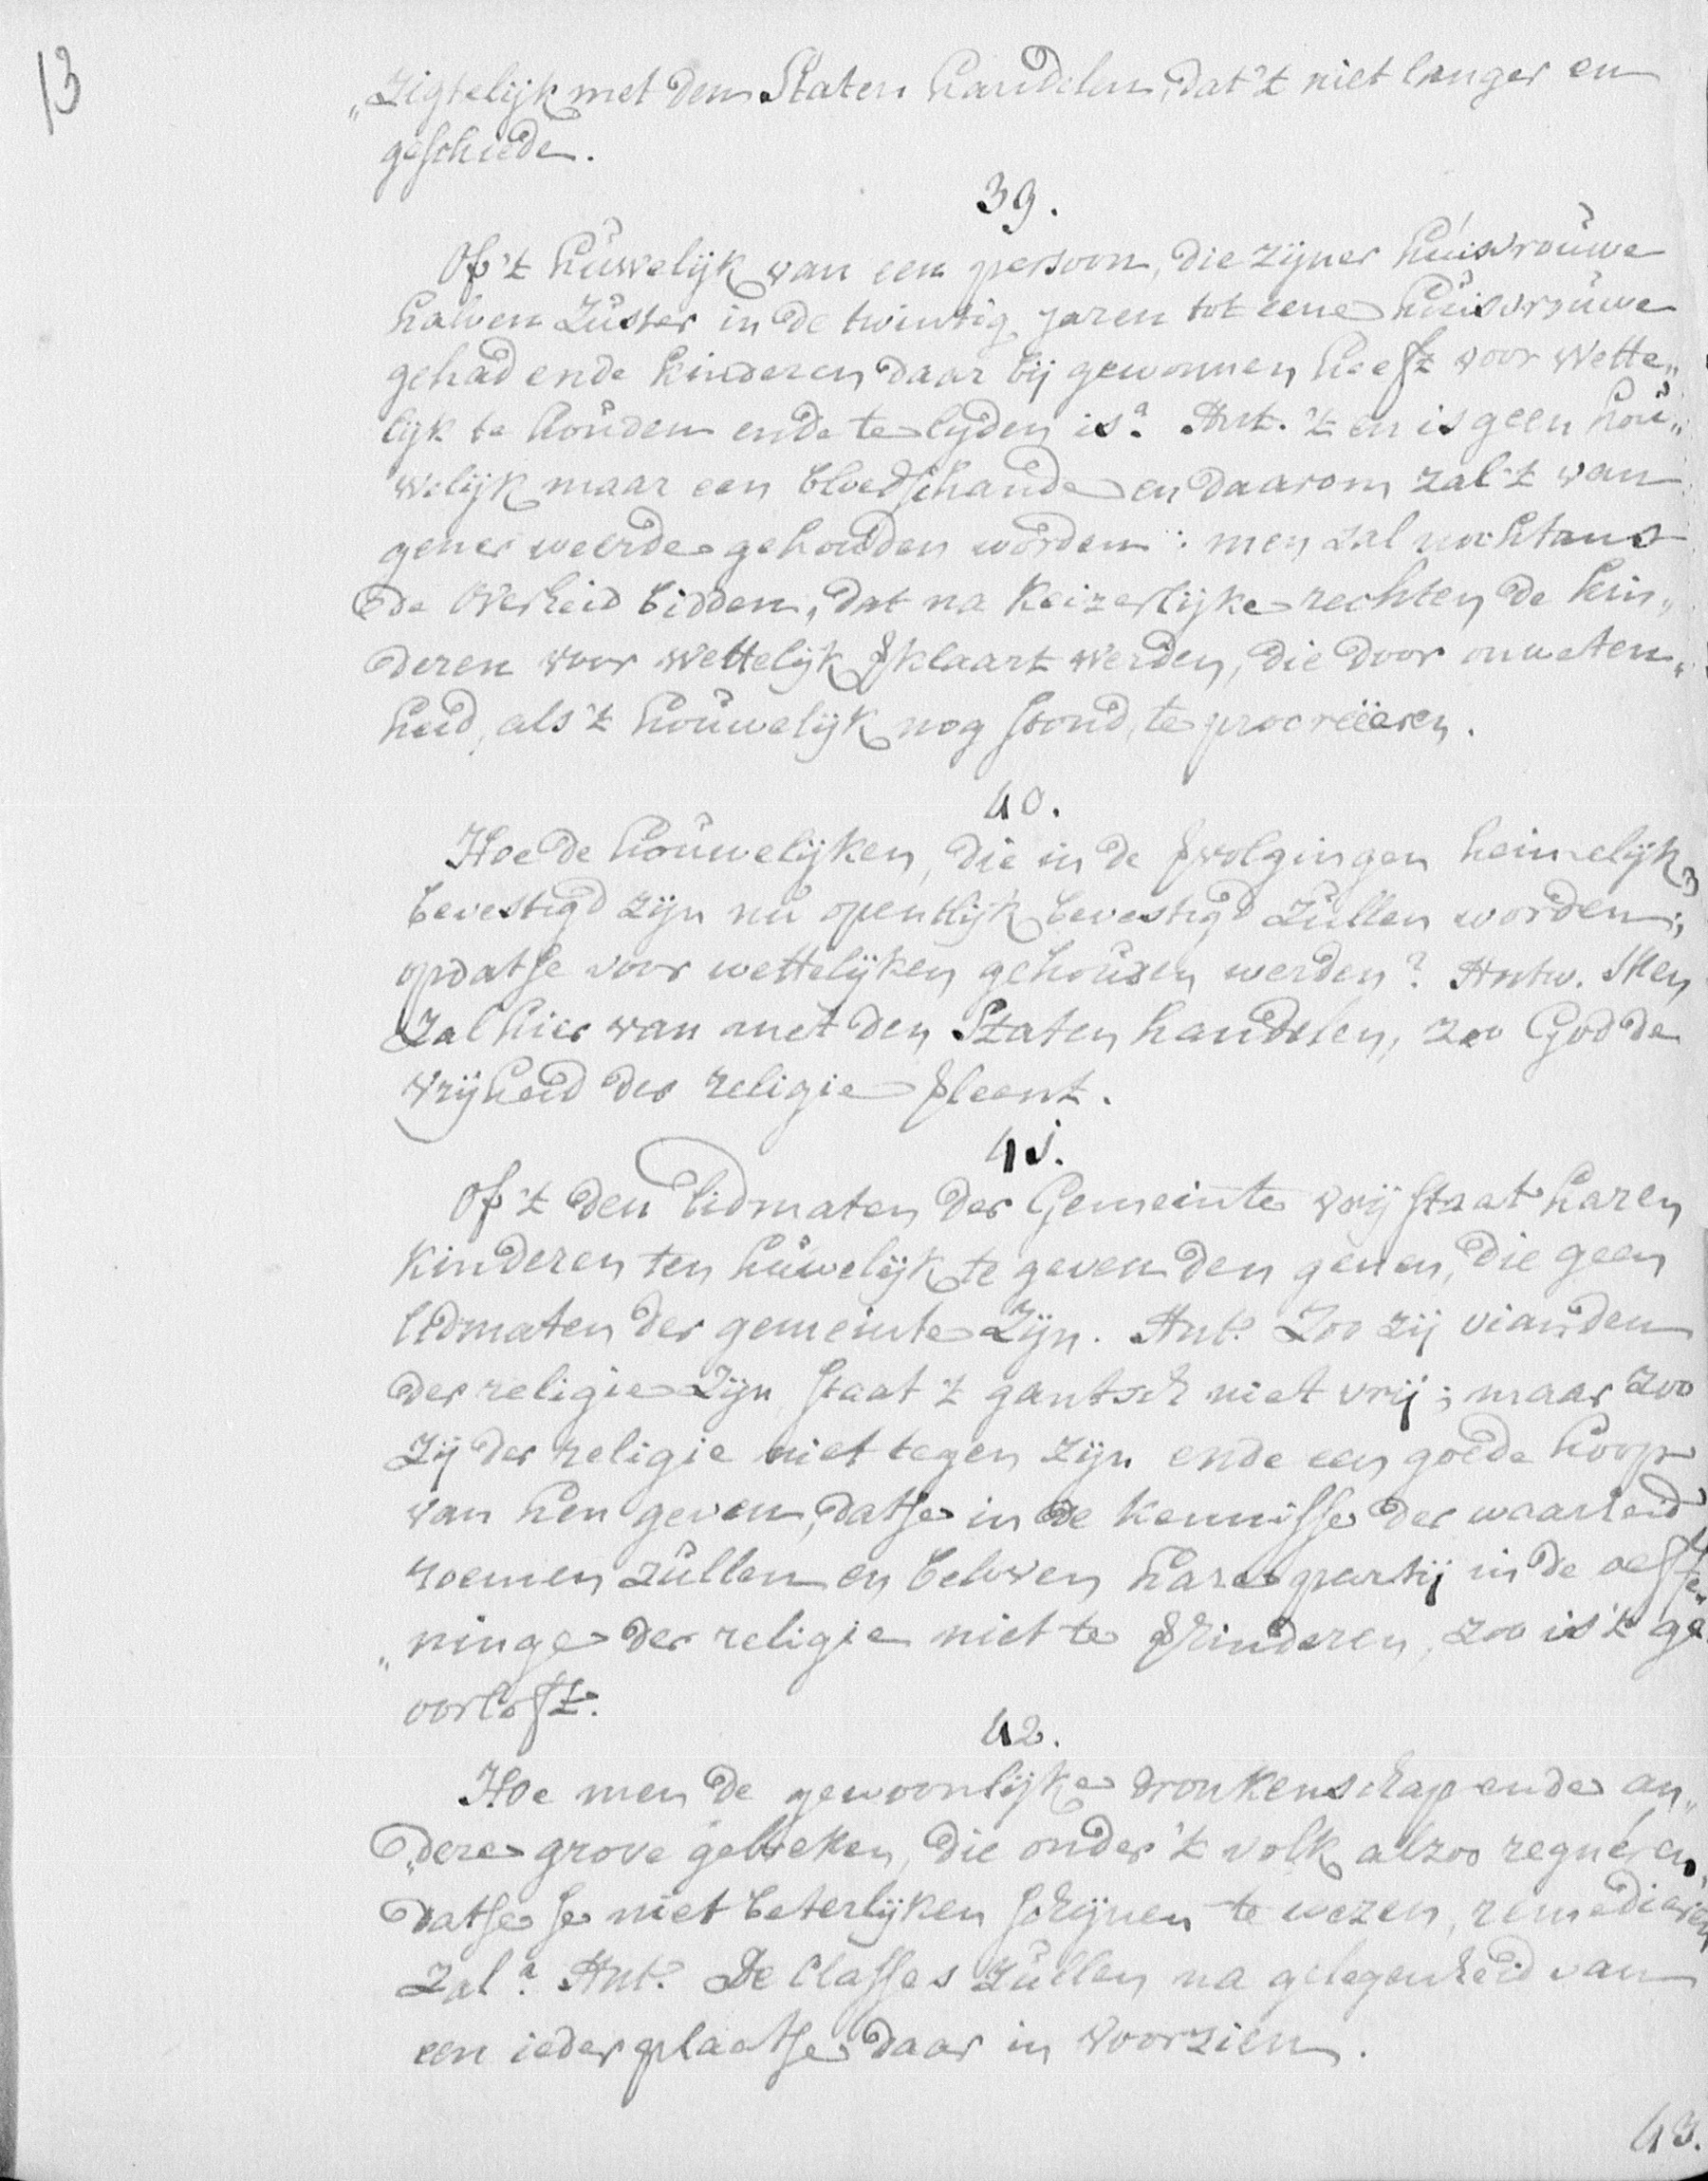 13
„zigtelijk met den Staten handelen, dat 't niet langer en
geschiede.
39.
Of 't huwelijk van een persoon, die zijner huisvrouwe
halven zuster in de twintig jaren tot eene huisvrouwe
gehad ende kinderen daar bij gewonnen heeft voor wette„
lijk te houden ende te lyden is? Ant. 't en is geen hou„
welijk maar een bloedschande en daarom zal 't van
gener weerde gehouden worden: men zal nochtans
de Overheid bidden, dat na Keizerlijke rechten de kin„
deren voor wettelijk verklaart werden, die door onweten„
heid, als 't houwelijk nog stond, te procreëeren.
40.
Hoe de houwelijken, die in de vervolgingen heimelijk
bevestigd zijn nu opentlijk bevestigd zullen worden,
opdatse voor wettelijken gehouden werden? Antw. Men
zal hier van met den Staten handelen, zoo God de
vrijheid der religie verleent.
41.
Of 't den lidmaten der Gemeinte vrij staat haren
kinderen ten huwelijk te geven den genen, die geen
lidmaten der gemeinte zijn. Ant. Zoo zij vianden
der religie zijn staat 't gantsch niet vrij; maar zoo
zij der religie niet tegen zijn ende een goede hoop
van hen geven, datse in de kennisse der waarheid
roemen zullen en beloven hare partij in de oeffe„
„ninge der religie niet te verhinderen, zoo is 't ge
oorloft.
42.
Hoe men de gewoonlijke dronkenschap ende an„
„dere grove gebreken, die onder 't volk alzoo regnéren,
datse se niet beterlijken schijnen te wezen, remediëren
zal? Ant. De Classes zullen na gelegenheid van
een ieder plaatse daar in voorzien.
43.